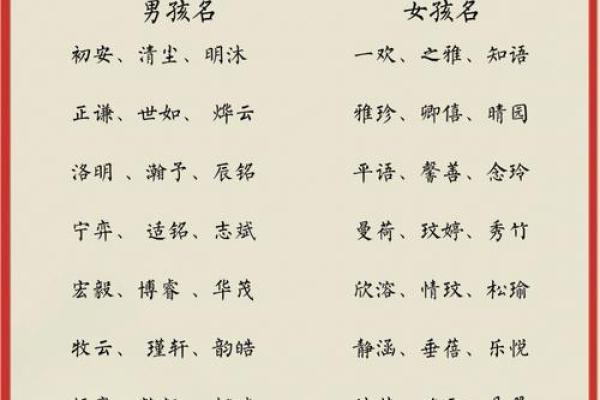 男孩名 女孩名
初安、清尘、明沐 一欢、之雅、知语
正谦、世如、烨云 雅珍、卿僖、晴园
洛明、瀚予、辰铭 平语、馨善、念玲
宁弈、适铭、志斌 曼荷、玟婷、秀竹
宏毅、博睿、华茂 欣溶、情玟、松瑜
牧云、瑾轩、韵皓 静涵、垂蓓、乐悦